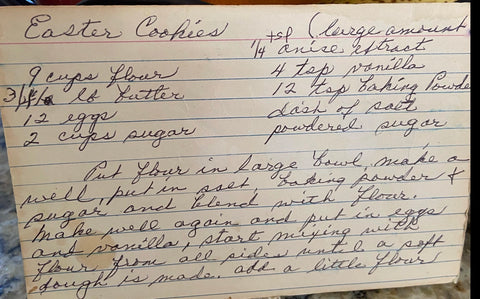 Easter Cookies (large amount
1/4 tsp anise extract
9 cups flour
4 tsp vanilla
3/4 lb butter
12 tsp baking Powde
12 eggs
dash of salt
2 cups sugar
powdered sugar
Put flour in large bowl, make a
well, put in salt, baking powder &
sugar and blend with flour.
Make well again and put in eggs
and vanilla, start mixing with
flour from all sides until a soft
dough is made. add a little flour